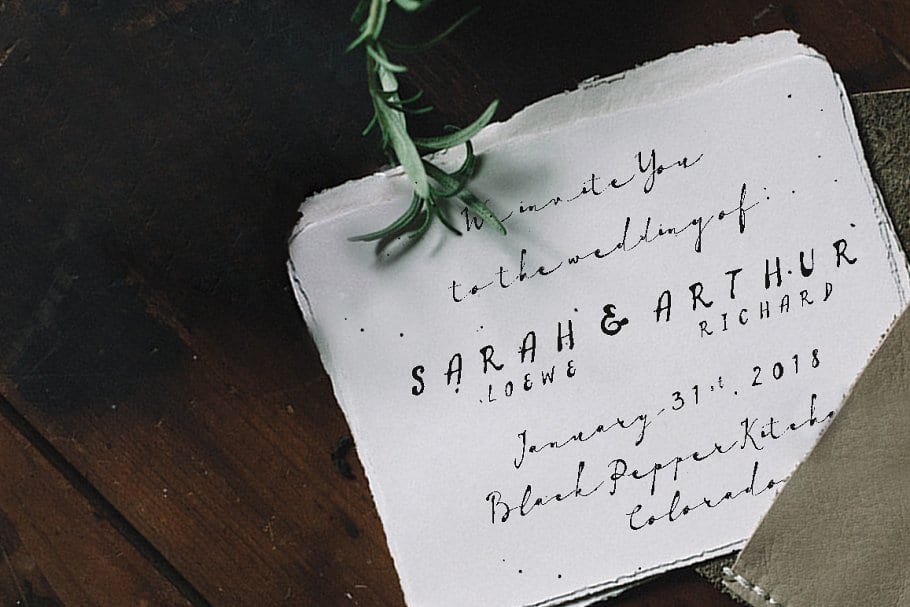 We invite You
to the wedding of:
SARAH & ARTHUR
LOEWE RICHARD
January 31st, 2018
Black Pepper
Colorado